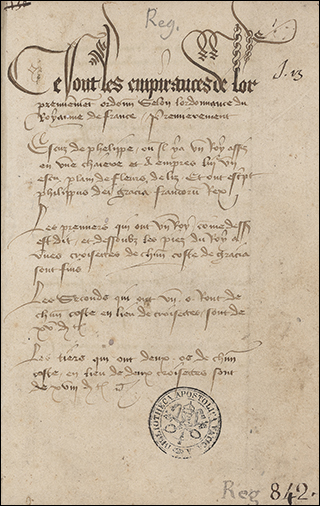 Reg.
J. 13
Ce sont les empirances de lor
premierement ordonne selon lordonnance du
Royaume de france / Premierement
Escuz de phelippe, ou il y a un Roy assez
en une chaiere et empres luy un
escu plain de fleurs de liz Et ont escript
philippus dei gracia francorum Rex
Les premiers qui ont un Roy come dess
est dit, et dessoubz les piez du Roy a
unes croisectes de chun coste de gracia
sont fins
Les Seconds qui ont un o Ront de
chun coste en lieu de croisectes, sont de
Les tiers qui ont deux oo de chun
coste en lieu de deux croisectes sont
de xviii
BIBLIOTHECA APOSTOLICA VATICANA
Reg 842.